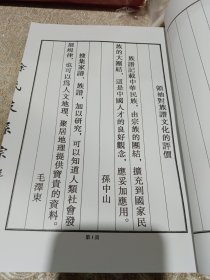 領袖對族譜文化的評價
族譜記載中華民族，由宗族的團結，擴充到國家民
族的大團結，這是中國人才的良好觀念，應妥加應用。
孫中山
搜集家譜、族譜，加以研究，可以知道人類社會發
展規律，也可以為人文地理、聚居地理提供寶貴的資料。
毛澤東
第1頁